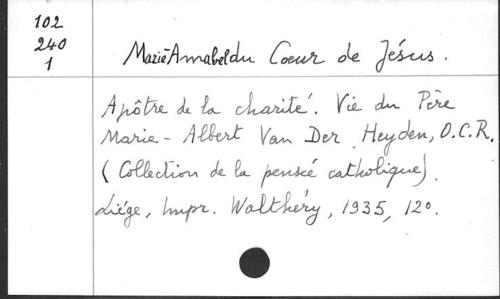 102
240
1
Marie-Amabel du Coeur de Jésus.
Apôtre de la charité. Vie du Père
Marie-Albert Van Der Heyden, O.C.R.
(Collection de la pensée catholique).
Liége, Impr. Walthéry, 1935, 12°.